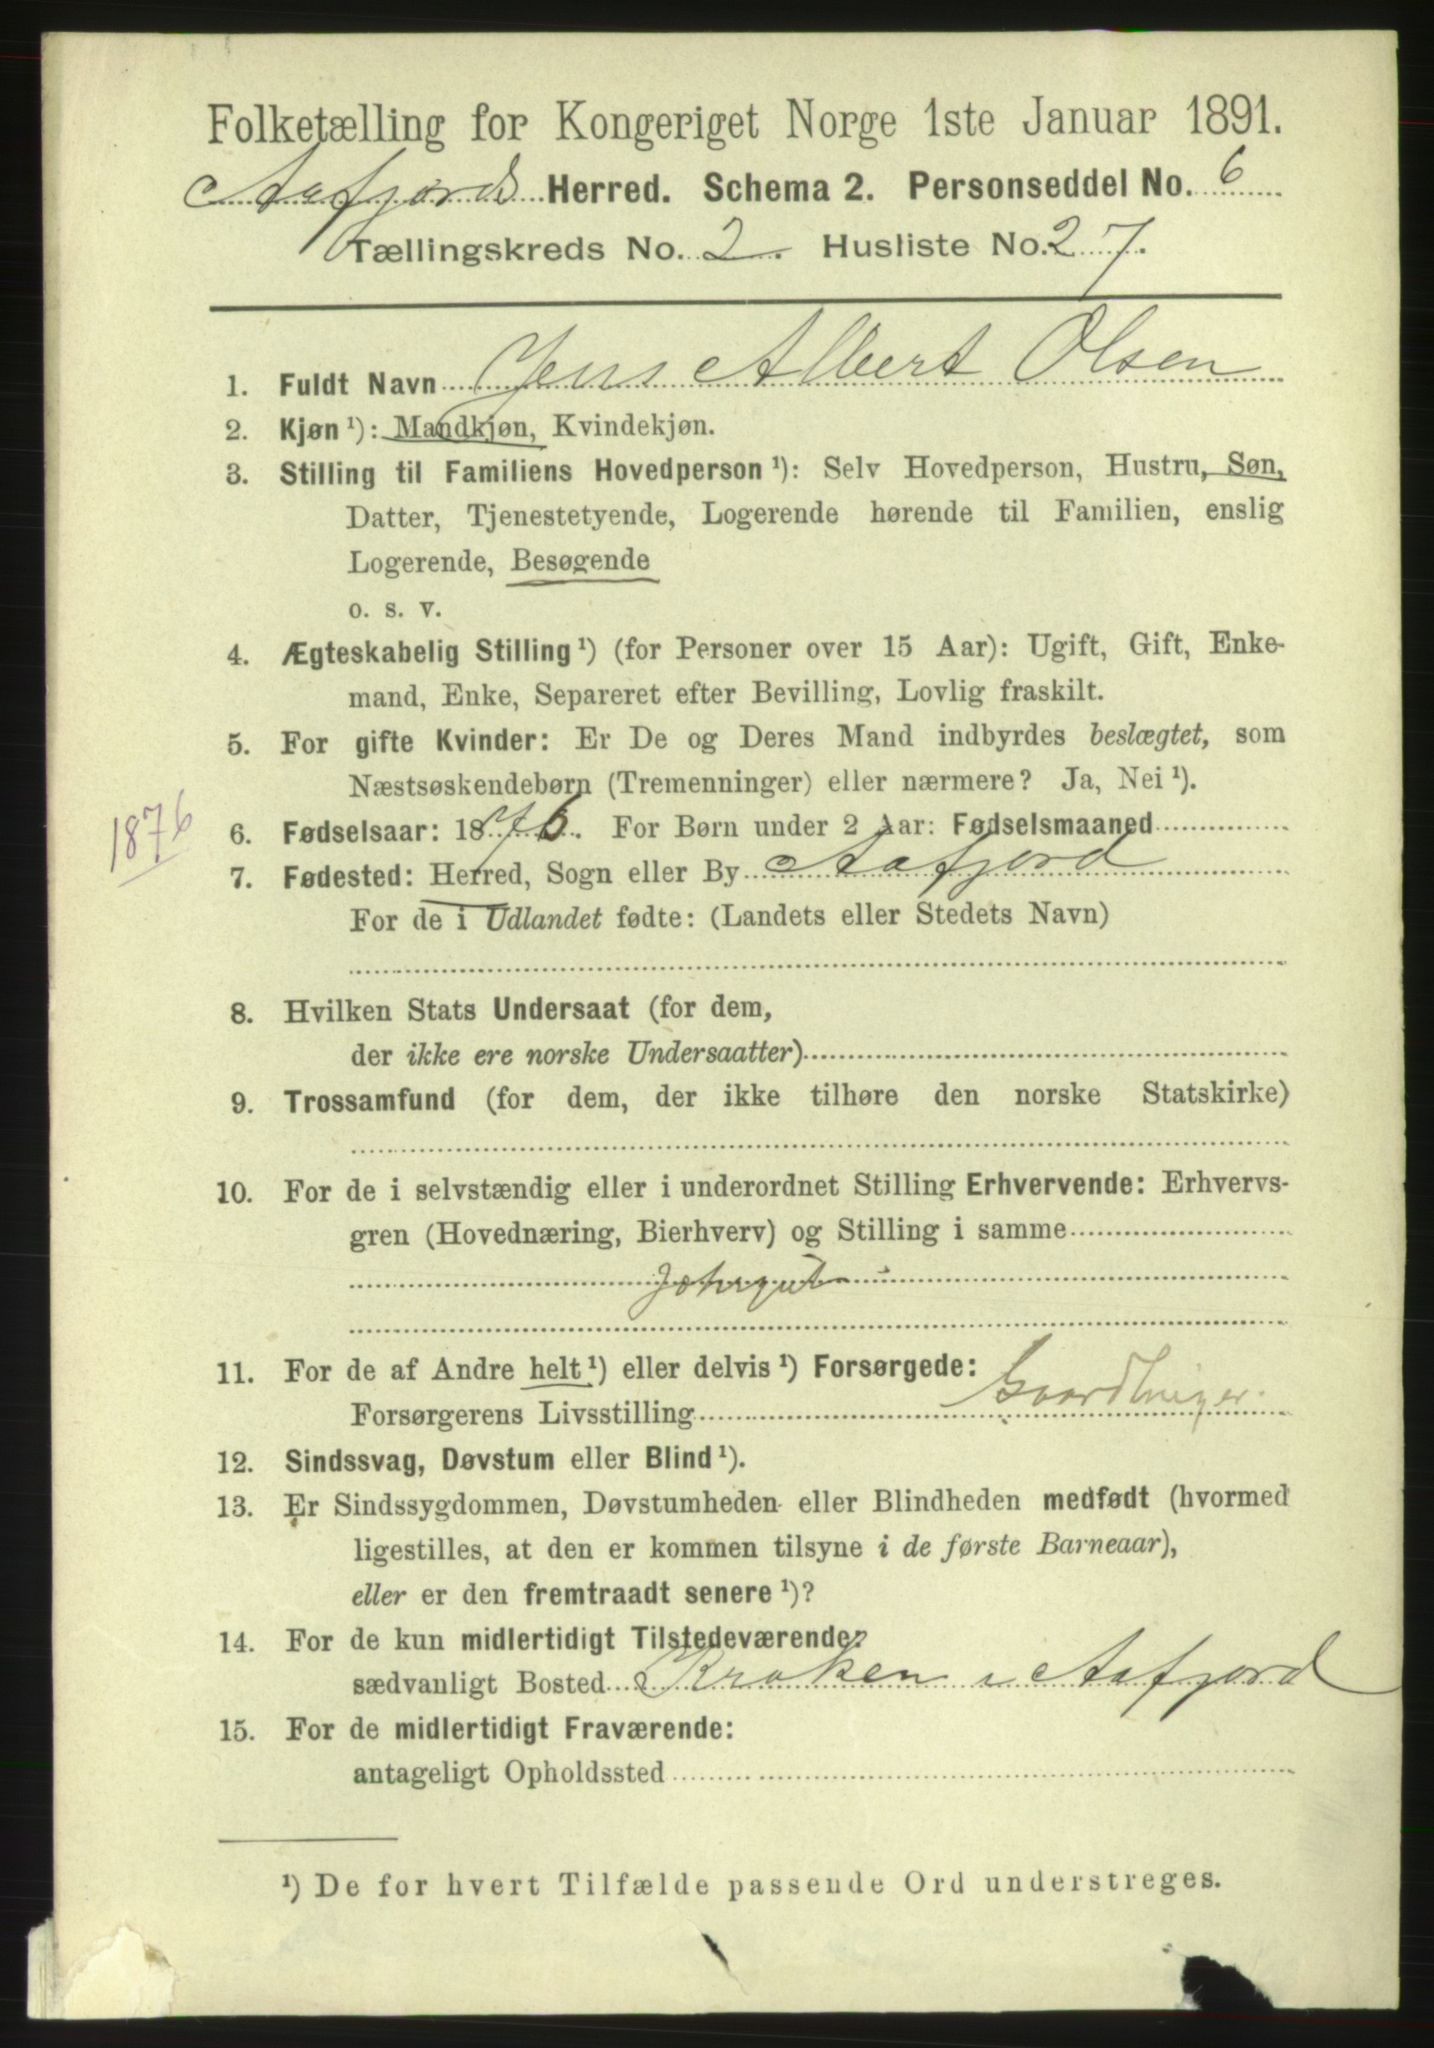 Folketælling for Kongeriget Norge 1ste Januar 1891.
Aafjords Herred. Schema 2. Personseddel No. 6
Tællingskreds No. 2. Husliste No. 27.
1. Fuldt Navn Jens Albert Olsen
2. Kjøn ¹): Mandkjøn, Kvindekjøn.
3. Stilling til Familiens Hovedperson ¹): Selv Hovedperson, Hustru, Søn,
Datter, Tjenestetyende, Logerende hørende til Familien, enslig
Logerende, Besøgende
o. s. v.
4. Ægteskabelig Stilling ¹) (for Personer over 15 Aar): Ugift, Gift, Enke-
mand, Enke, Separeret efter Bevilling, Lovlig fraskilt.
5. For gifte Kvinder: Er De og Deres Mand indbyrdes beslægtet, som
Næstsøskendebørn (Tremenninger) eller nærmere? Ja, Nei ¹).
1876
6. Fødselsaar: 1876. For Børn under 2 Aar: Fødselsmaaned
7. Fødested: Herred, Sogn eller By Aafjord
For de i Udlandet fødte: (Landets eller Stedets Navn)
8. Hvilken Stats Undersaat (for dem,
der ikke ere norske Undersaatter)
9. Trossamfund (for dem, der ikke tilhøre den norske Statskirke)
10. For de i selvstændig eller i underordnet Stilling Erhvervende: Erhvervs-
gren (Hovednæring, Bierhverv) og Stilling i samme
11. For de af Andre helt ¹) eller delvis ¹) Forsørgede:
Forsørgerens Livsstilling Gaardbruger.
12. Sindssvag, Døvstum eller Blind ¹).
13. Er Sindssygdommen, Døvstumheden eller Blindheden medfødt (hvormed
ligestilles, at den er kommen tilsyne i de første Barneaar),
eller er den fremtraadt senere ¹)?
14. For de kun midlertidigt Tilstedeværende:
sædvanligt Bosted Kraken i Aafjord
15. For de midlertidigt Fraværende:
antageligt Opholdssted
¹) De for hvert Tilfælde passende Ord understreges.